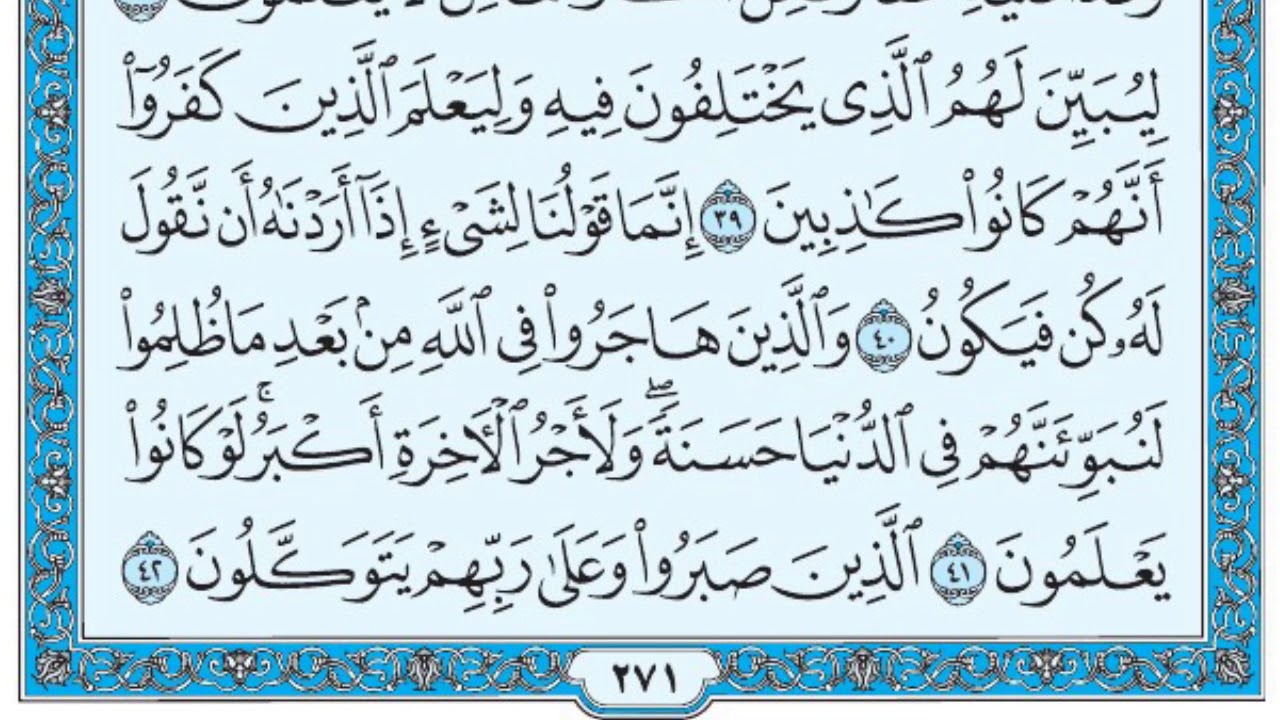 لِيُبَيِّنَ لَهُمُ ٱلَّذِى يَخْتَلِفُونَ فِيهِ وَلِيَعْلَمَ ٱلَّذِينَ كَفَرُوٓا۟
أَنَّهُمْ كَانُوا۟ كَـٰذِبِينَ ٣٩ إِنَّمَا قَوْلُنَا لِشَىْءٍ إِذَآ أَرَدْنَـٰهُ أَن نَّقُولَ
لَهُۥ كُن فَيَكُونُ ٤٠ وَٱلَّذِينَ هَاجَرُوا۟ فِى ٱللَّهِ مِنۢ بَعْدِ مَا ظُلِمُوا۟
لَنُبَوِّئَنَّهُمْ فِى ٱلدُّنْيَا حَسَنَةً ۖ وَلَأَجْرُ ٱلْـَٔاخِرَةِ أَكْبَرُ ۚ لَوْ كَانُوا۟
يَعْلَمُونَ ٤١ ٱلَّذِينَ صَبَرُوا۟ وَعَلَىٰ رَبِّهِمْ يَتَوَكَّلُونَ ٤٢
٢٧١